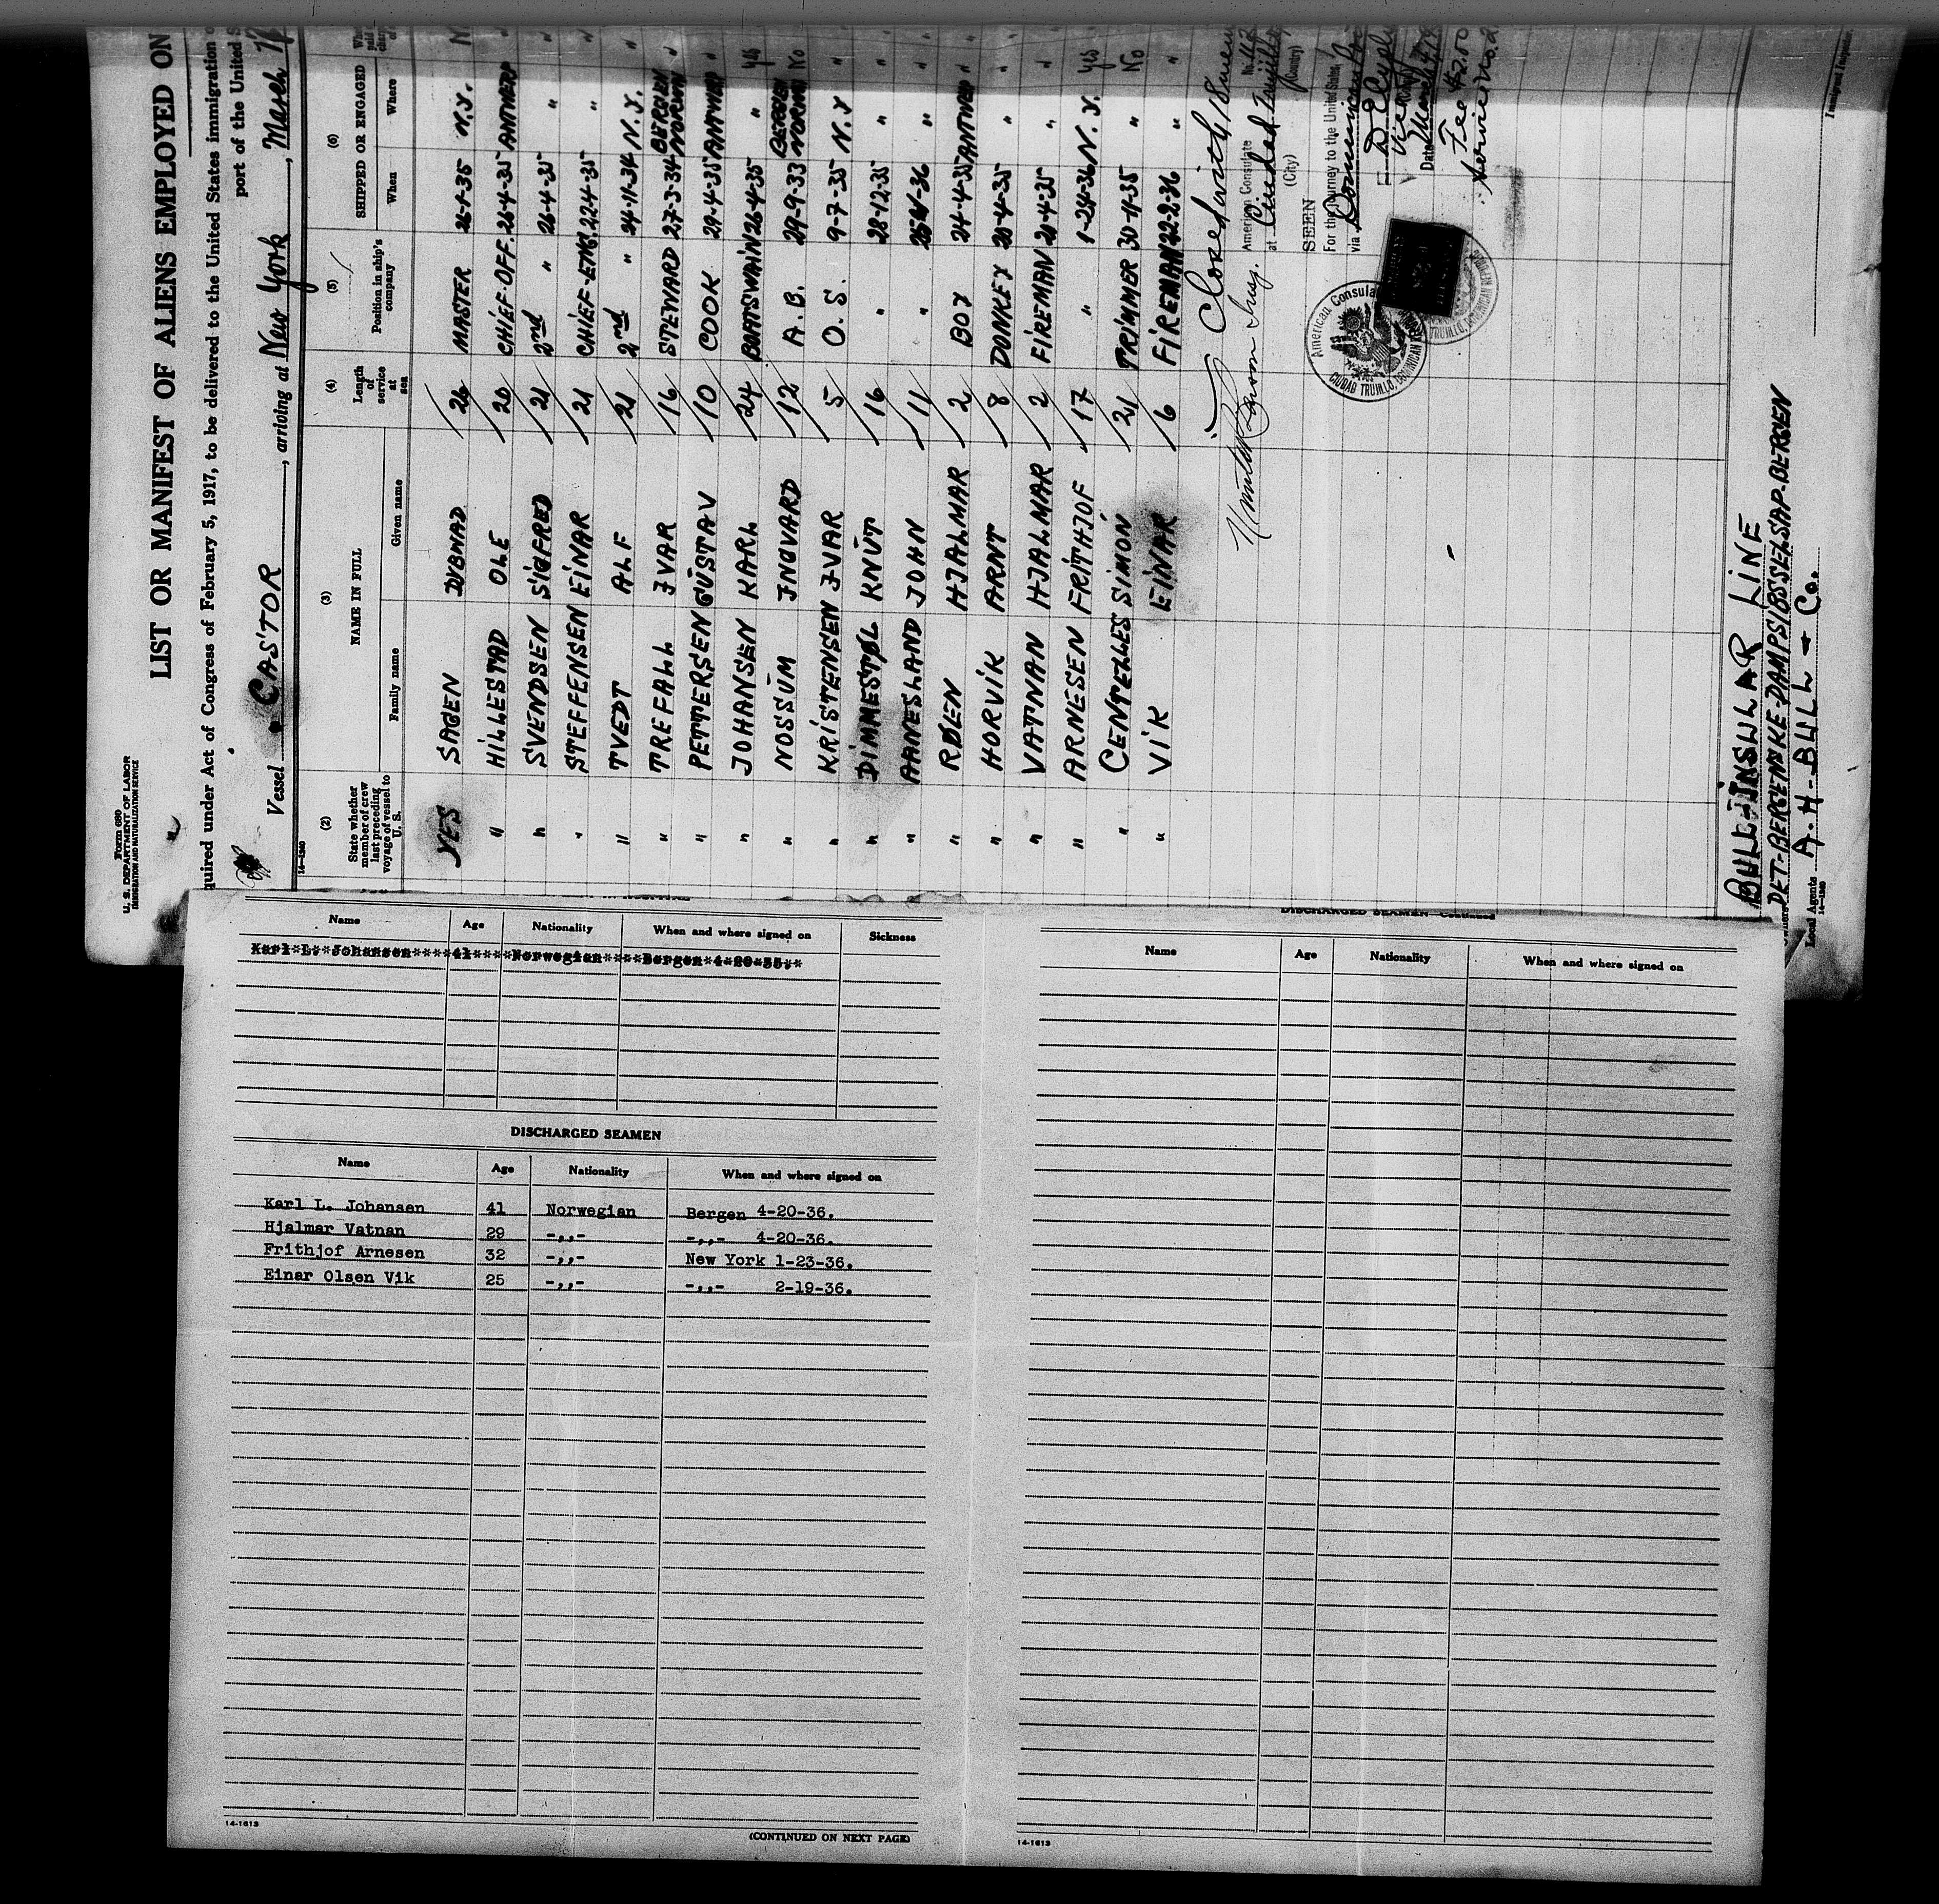 Form 680
U. S. DEPARTMENT OF LABOR
IMMIGRATION AND NATURALIZATION SERVICE
LIST OR MANIFEST OF ALIENS EMPLOYED ON
quired under Act of Congress of February 5, 1917, to be delivered to the United States immigration
port of the United S
Vessel CASTOR, arriving at New York, March
14—1240
(2) (3) (4) (5) (6)
State whether member of crew last preceding voyage of vessel to U. S.
NAME IN FULL
Family name Given name
Length of service at sea
Position in ship's company
SHIPPED OR ENGAGED
When Where
YES SAGEN DYBWAD 26 MASTER 26-1-35 N.Y.
" HILLESTAD OLE 20 CHIEF-OFF. 26-4-35 ANTWERP
" SVENDSEN SIGFRED 21 2nd " 26-4-35 "
" STEFFENSEN EINAR 21 CHIEF-ENG. 22-4-35 "
" TVEDT ALF 21 2nd " 24-11-34 N.Y.
" TREFALL IVAR 16 STEWARD 27-3-34 BERGEN NORWAY
" PETTERSEN GUSTAV 10 COOK 29-4-35 ANTWERP
" JOHANSEN KARL 24 BOATSWAIN 26-4-35 " yes
" NOSSUM INGVARD 12 A.B. 29-9-33 BERGEN NORWAY No
" KRISTENSEN IVAR 5 O.S. 9-7-35 N.Y "
" DIMMESTØL KNUT 16 " 28-12-35 " "
" AANESLAND JOHN 11 " " "
" RØEN HJALMAR 2 BOY 24-4-35 ANTWERP "
" HORVIK ARNT 8 DONKEY 20-4-35 " "
" VATNAN HJALMAR 2 FIREMAN 20-4-35 " "
" ARNESEN FRITHJOF 17 " 1-24-36 N.Y. yes
" CENTELLES SIMON 21 TRIMMER 30-11-35 " No
" VIK EINAR 6 FIREMAN 22-2-36 " "
Closed with 18
American Consulate
at Ciudad Trujillo
(City) (County)
SEEN
For the journey to the United States
via Dominican
Date March
Fee $2.00
Service No.
American Consulate
CIUDAD TRUJILLO, DOMINICAN REPUBLIC
BULL-INSULAR LINE
DET-BERGENSKE-DAMPSKIBSSELSKAP-BERGEN
Local Agents A-H-BULL & Co.
14—1240
Immigrant Inspector.
Name Age Nationality When and where signed on Sickness
Karl L. Johansen 41 Norwegian Bergen 4-20-35.
DISCHARGED SEAMEN
Name Age Nationality When and where signed on
Karl L. Johansen 41 Norwegian Bergen 4-20-36.
Hjalmar Vatnan 29 -,,- -,,- 4-20-36.
Frithjof Arnesen 32 -,,- New York 1-23-36.
Einar Olsen Vik 25 -,,- -,,- 2-19-36.
14-1613
(CONTINUED ON NEXT PAGE)
DISCHARGED SEAMEN—Continued
Name Age Nationality When and where signed on
14-1613